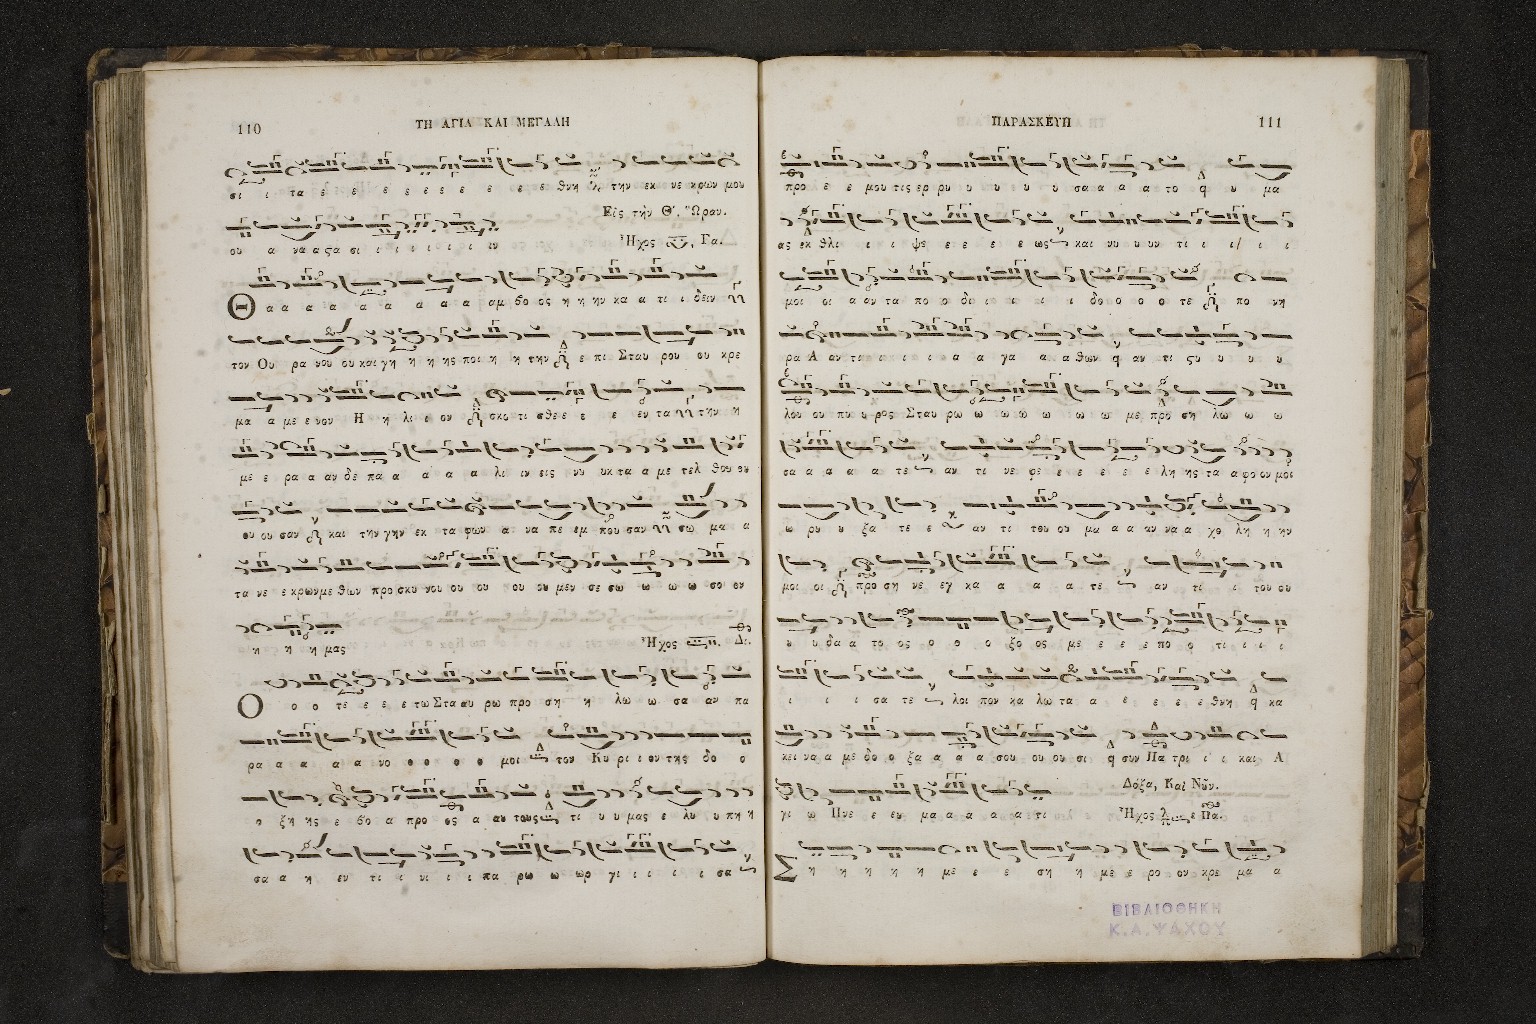 110
ΤΗ ΑΓΙΑ ΚΑΙ ΜΕΓΑΛΗ
σι ι τα ε ε ε ε ε ε ε ε ε ε θνη την εκ νε κρων μου
Εἰς τὴν Θ΄. Ὥραν.
ου α να α ςα σι ι ι ι ι ι ιν
Ἦχος , Γα.
Θ α α α α α α α α α αμ βο ος η η ην κα α τι ι δειν
τον Ου ρα νου ου και γη η η ης ποι η η την ε πι Σταυ ρου ου κρε
μα α με ε νον Η η λι ι ον σκο τι σθε ε ε ε εν τα την η
με ε ρα α αυ δε πα α α α α λι ιν εις νυ υκ τα α με τελ θου ου
ου ου σαν και την γην εκ τα φων α να πε εμ που σαν σω μα α
τα νε ε κρων με θων προ σκυ νου ου ου ου ου μεν σε σω ω ω ω σο ον
η η η μας
Ἦχος . Δι.
Ο ο ο τε ε ε ε τω Στα αυ ρω προ ση η λω ω σα αν πα
ρα α α α α νο ο ο ο ο μοι τον Κυ ρι ι ον της δο ο
ο ξη ης ε βο α προ ος α αυ τους τι υ υ μας ε λυ υ πη η
σα α η εν τι ι νι ι ι πα ρω ω ωρ γι ι ι ι ι σα
ΠΑΡΑΣΚΕΥΗ
111
προ ε ε μου τις ερ ρυ υ υ υ υ υ σα α α α το υ μα
ας εκ θλι ι ι ι ψε ε ε ε ε ως και νυ υ υν τι ι ι ι ι
μοι οι α αν τα πο ο δι ι ι ι ι δο ο ο ο τε πο νη
ρα Α αν τι ι ι ι ι α α γα α α θων αν τι ςυ υ υ υ
λου ου πυ υ ρος Σταυ ρω ω ω ω ω ω ω με προ ση λω ω ω
σα α α α α τε αν τι νε φε ε ε ε ε ε λη ης τα α φο ον μοι
ω ρυ υ ξα τε ε αν τι του ου μα α α αν να α χο λη η ην
μοι οι προ ση νε εγ κα α α α α τε αν τι ι ι του ου
υ υ δα α το ος ο ο ο ξο ος με ε ε ε πο ο τι ι ι ι
ι ι ι σα τε λοι πον κα λω τα α ε ε ε ε θνη κα
κει να α με δο ο ξα α α α σου ου ου σι συν Πα τρι ι ι και Α
γι ω Πνε ε ευ μα α α α α τι
Δόξα, Καὶ Νῦν.
Ἦχος Πα.
Σ η η η η η με ε ε ση η με ε ρο ον κρε μα α
ΒΙΒΛΙΟΘΗΚΗ
Κ. Α. ΨΑΧΟΥ